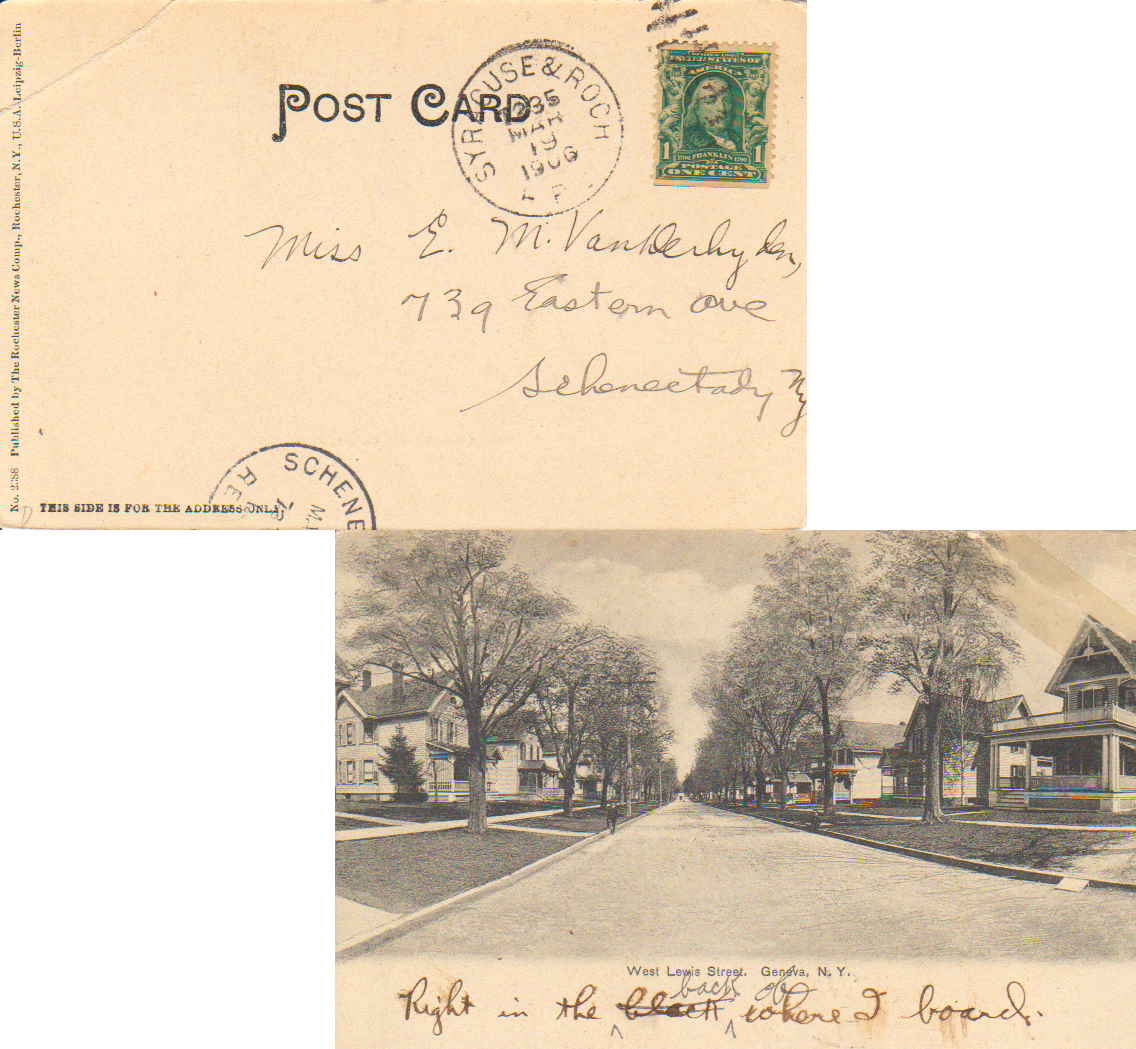 No. 2388 Published by The Rochester News Comp., Rochester, N.Y., U.S.A. Leipzig-Berlin
POST CARD
SYRACUSE & ROCH
235
MAR
19
1906
UNITED STATES OF
AMERICA
1 FRANKLIN 1
POSTAGE
ONE CENT
Miss E. M. VanDerhyden,
739 Eastern ave
Schenectady Ny
SCHENE
REC
THIS SIDE IS FOR THE ADDRESS ONLY
West Lewis Street. Geneva, N. Y.
back of
Right in the block where I board.